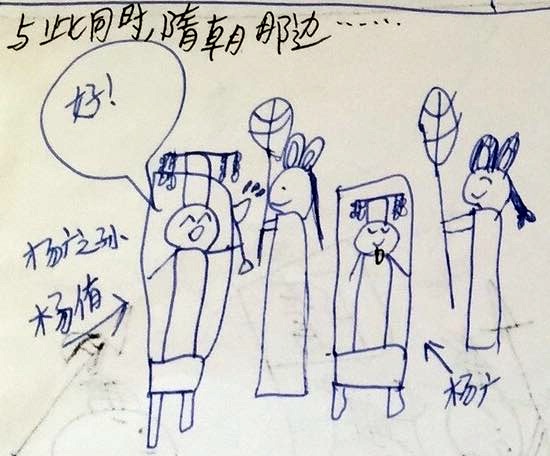 与此同时,隋朝那边……
好!
杨广之孙
杨侑
杨广